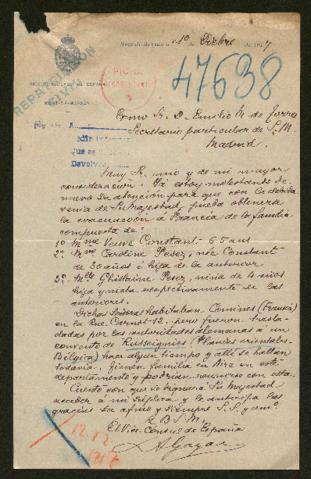 1º Dicbre 1917
47638
REPARACION
Exmo Sr. D. Emilio M. de Torres
Secretario particular de S. M.
Madrid
Muy Sr. mio y de mi mayor
consideración: Va estoy molestando de
nuevo su atención para que con la debida
venia de Su Majestad, pueda obtenerse
la evacuación á Francia de la familia
compuesta de:
1º Mme Veuve Constant - 65 ans
2º Mme Caroline née Constant
de 30 años é hija de la anterior.
3º Mlle Ghislaine niña de 4 años
hija y nieta respectivamente de las
anteriores.
Dichas Señoras habitaban Comines (Francia)
en la Rue Carnot-12. pero fueron trasla-
dadas por las autoridades alemanas á un
convento de (Flandes orientales-
Bélgica) hace algun tiempo y alli se hallan
todavia. familia en este
departamento y podrian reunirse con ella.
Cuento con que se dignará Su Majestad
acceder á mi súplica y le anticipa las
gracias su afmo y siempre S. S. y am.
Q. B. S. M.
El Vice-Consul de España
12.12
1917